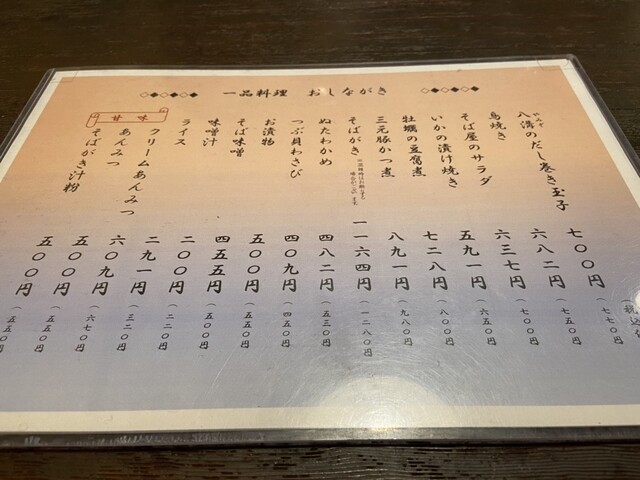 一品料理 おしながき
やみぞ
八溝のだし巻き玉子 七〇〇円 (七七〇円
鳥焼き 六八二円 (七五〇円
そば屋のサラダ 六三七円 (七〇〇円
いかの漬け焼き 五九一円 (六五〇円
牡蠣の豆腐煮 七二八円 (八〇〇円
三元豚かつ煮 八九一円 (九八〇円
そばがき 一一六四円 (一二八〇円
ぬたわかめ 四八二円 (五三〇円
つぶ貝わさび 四〇九円 (四五〇円
お漬物 五〇〇円 (五五〇円
そば味噌 四五五円 (五〇〇円
味噌汁 二〇〇円 (二二〇円
ライス 二九一円 (三二〇円
甘味
クリームあんみつ 六〇九円 (六七〇円
あんみつ 五〇〇円 (五五〇円
そばがき汁粉 五〇〇円 (五五〇円